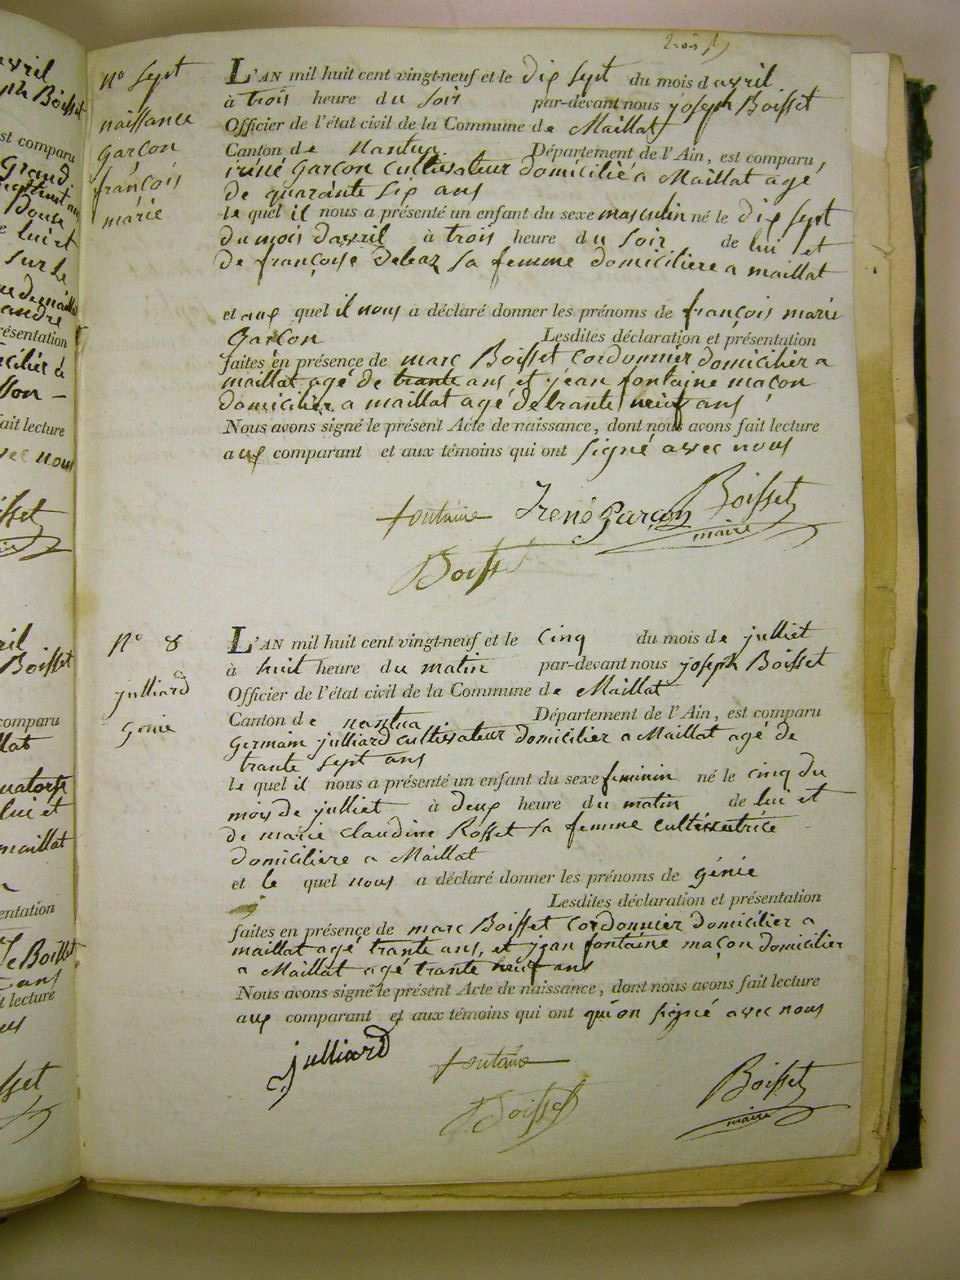 avril
ph Boisset
est comparu
grand
Doux
lui et
sur le
andre
résentation
cilier à
sson –
fait lecture
vec nous
sset
ril
Boisset
comparu
llat
quatorze
lui et
maillat
sentation
Le Boisset
ans
t lecture
us
sset
trois
n° sept
naissance
garçon
françois
marie
L'AN mil huit cent vingt-neuf et le dix sept du mois d avril
à trois heure du soir par-devant nous joseph Boisset
Officier de l'état civil de la Commune de Maillat
Canton de nantua Département de l'Ain, est comparu,
iréné garçon cultivateur domicilié a Maillat agé
de quarante six ans
le quel il nous a présenté un enfant du sexe masculin né le dix sept
du mois d'avril à trois heure du soir de lui et
de françoise debaz sa femme domiciliere a maillat
et aux quel il nous a déclaré donner les prénoms de françois marie
garçon Lesdites déclaration et présentation
faites en présence de marc Boisset cordonnier domicilier a
maillat agé de trante ans et jean fontaine maçon
domicilier a maillat agé de trante neuf ans
Nous avons signé le présent Acte de naissance, dont nous avons fait lecture
aux comparant et aux témoins qui ont signé avec nous
fontaine Irené garçon Boisset
maire
Boisset
N° 8
julliard
génie
L'AN mil huit cent vingt-neuf et le cinq du mois de julliet
à huit heure du matin par-devant nous joseph Boisset
Officier de l'état civil de la Commune de Maillat
Canton de nantua Département de l'Ain, est comparu
germain julliard cultivateur domicilier a Maillat agé de
trante sept ans
le quel il nous a présenté un enfant du sexe feminin né le cinq du
mois de julliet à deux heure du matin de lui et
de marie claudine Rosset sa femme cultivatrice
domiciliere a Maillat
et le quel nous a déclaré donner les prénoms de génie
Lesdites déclaration et présentation
faites en présence de marc Boisset cordonnier domicilier a
maillat agé trante ans, et jean fontaine maçon domicilier
a Maillat agé trante neuf ans
Nous avons signé le présent Acte de naissance, dont nous avons fait lecture
aux comparant et aux témoins qui ont qui on signé avec nous
julliard fontaine
Boisset Boisset
maire